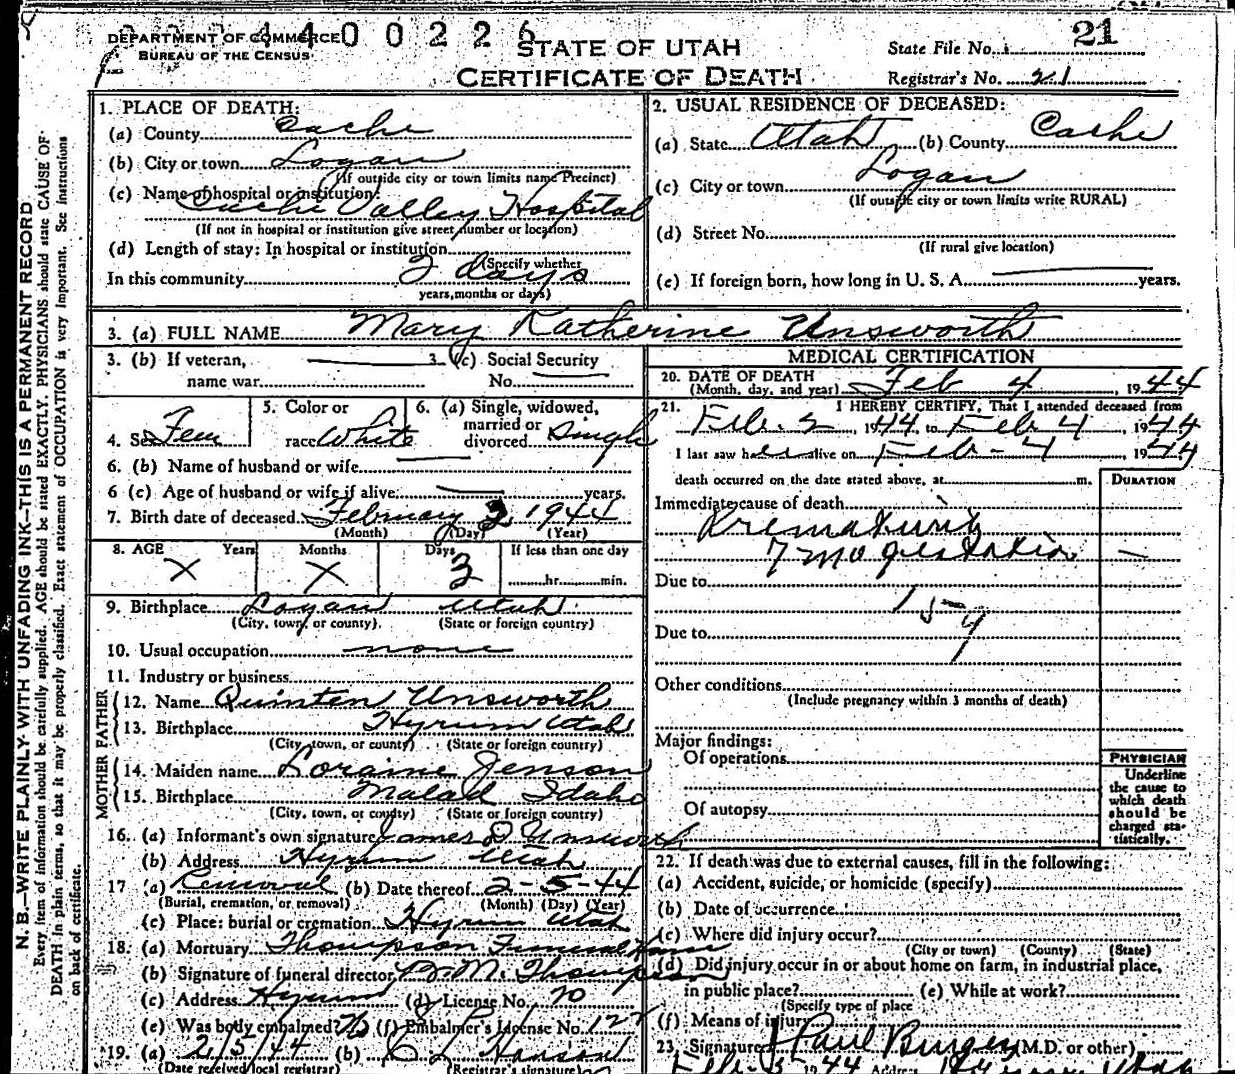 DEPARTMENT OF COMMERCE
BUREAU OF THE CENSUS
4400226
STATE OF UTAH
CERTIFICATE OF DEATH
State File No. 21
Registrar's No. 21
N. B.—WRITE PLAINLY WITH UNFADING INK—THIS IS A PERMANENT RECORD
Every item of information should be carefully supplied. AGE should be stated EXACTLY. PHYSICIANS should state CAUSE OF
DEATH in plain terms, so that it may be properly classified. Exact statement of OCCUPATION is very important. See instructions
on back of certificate.
1. PLACE OF DEATH:
(a) County Cache
(b) City or town Logan
(If outside city or town limits name Precinct)
(c) Name of hospital or institution:
Cache Valley Hospital
(If not in hospital or institution give street number or location)
(d) Length of stay: In hospital or institution
(Specify whether
In this community 2 days
years, months or days)
2. USUAL RESIDENCE OF DECEASED:
(a) State Utah (b) County Cache
(c) City or town Logan
(If outside city or town limits write RURAL)
(d) Street No.
(If rural give location)
(e) If foreign born, how long in U. S. A. years.
3. (a) FULL NAME Mary Katherine Unsworth
3. (b) If veteran, 3. (c) Social Security
name war No.
4. Sex Fem 5. Color or race White 6. (a) Single, widowed, married or divorced Single
6. (b) Name of husband or wife
6 (c) Age of husband or wife if alive years.
7. Birth date of deceased February 2 1944
(Month) (Day) (Year)
8. AGE Years Months Days If less than one day
X X 3 hr. min.
9. Birthplace Logan Utah
(City, town, or county) (State or foreign country)
10. Usual occupation none
11. Industry or business
FATHER
12. Name Quinten Unsworth
13. Birthplace Hyrum Utah
(City, town, or county) (State or foreign country)
MOTHER
14. Maiden name Loraine Jenson
15. Birthplace Malad Idaho
(City, town, or county) (State or foreign country)
16. (a) Informant's own signature James D Unsworth
(b) Address Hyrum Utah
17 (a) Removal (b) Date thereof 2-5-44
(Burial, cremation, or removal) (Month) (Day) (Year)
(c) Place: burial or cremation Hyrum Utah
18. (a) Mortuary Thompson Funeral Home
(b) Signature of funeral director B. M. Thompson
(c) Address Hyrum (d) License No. 70
(e) Was body embalmed? No (f) Embalmer's License No. 122
19. (a) 2/5/44 (b) C L Hanson
(Date received local registrar) (Registrar's signature)
MEDICAL CERTIFICATION
20. DATE OF DEATH
(Month, day, and year) Feb 4, 1944
21. I HEREBY CERTIFY, That I attended deceased from
Feb. 2, 1944, to Feb 4, 1944
I last saw her alive on Feb - 4, 1944
death occurred on the date stated above, at m. DURATION
Immediate cause of death
Prematurity
7 mo gestation —
Due to
159
Due to
Other conditions
(Include pregnancy within 3 months of death)
Major findings:
Of operations
Of autopsy
PHYSICIAN
Underline
the cause to
which death
should be
charged sta-
tistically.
22. If death was due to external causes, fill in the following:
(a) Accident, suicide, or homicide (specify)
(b) Date of occurrence
(c) Where did injury occur?
(City or town) (County) (State)
(d) Did injury occur in or about home on farm, in industrial place,
in public place? (e) While at work?
(Specify type of place
(f) Means of injury
23. Signature Paul Burgess (M.D. or other)
Feb. 5 1944 Address Hyrum Utah